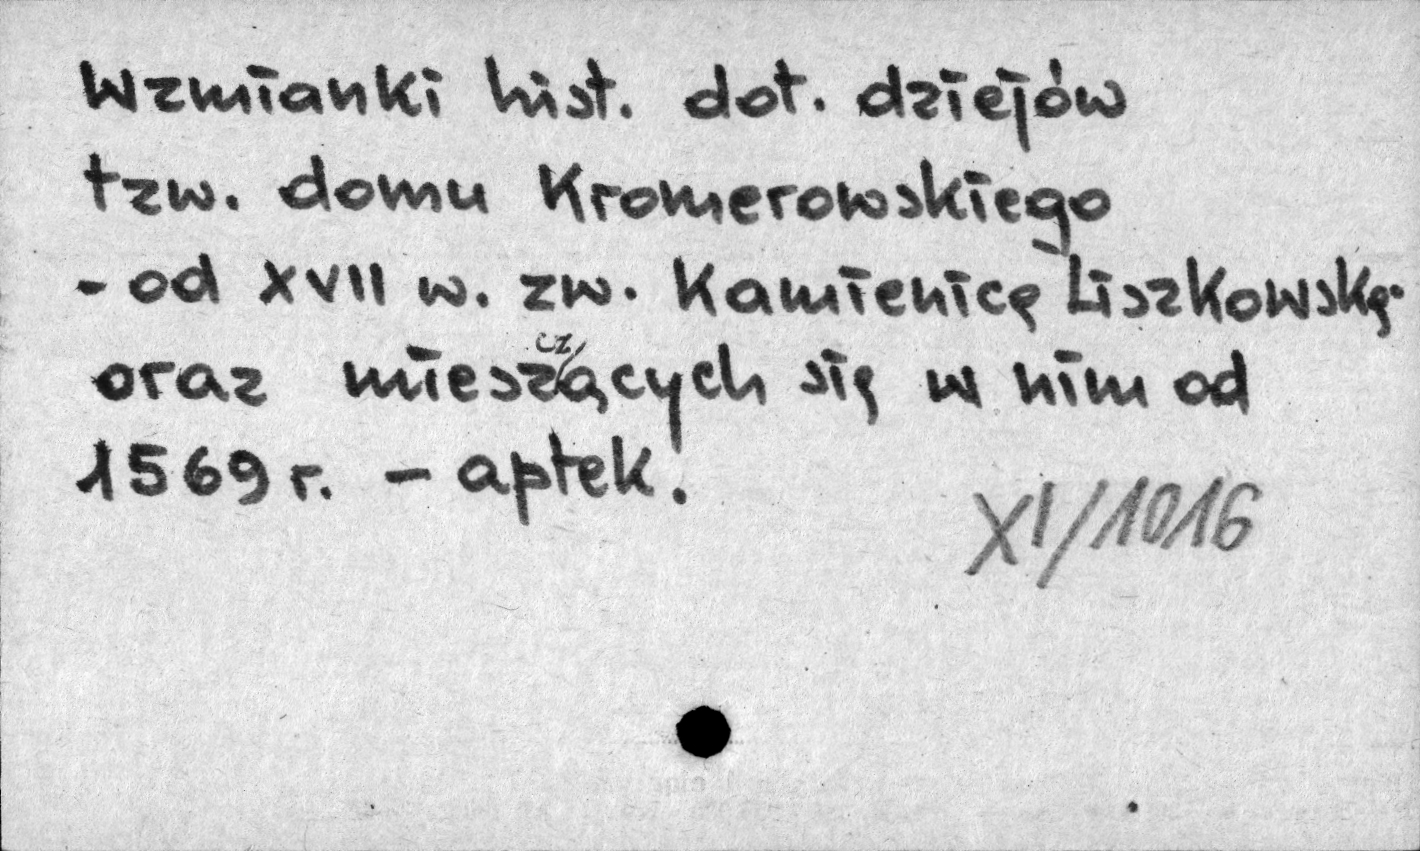 Wzmianki hist. dot. dziejów
tzw. domu Kromerowskiego
- od XVII w. zw. Kamienicę Liszkowską-
oraz mieszczących się w nim od
1569 r. - aptek.
XI/1016